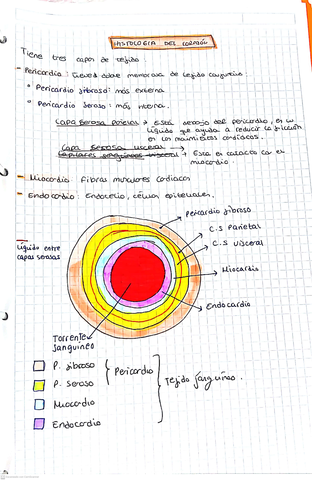 HISTOLOGIA DEL CORAZÓN
Tiene tres capas de tejido:
- Pericardio: Tienen doble membrana de tejido conjuntivo.
• Pericardio fibroso: más externa
• Pericardio seroso: más interna.
Capa Serosa Parietal → Está debajo del pericardio, es un
líquido que ayuda a reducir la fricción
en los movimientos cardiacos.
Capa Serosa visceral →
Capilares sanguíneos visceral → Esta en contacto con el
miocardio.
- Miocardio: Fibras musculares cardiacas
- Endocardio: Endotelio, células epiteliales.
Pericardio fibroso
C.S Parietal
C.S Visceral
Líquido entre
capas serosas
Miocardio
Endocardio
Torrente
Sanguíneo
P. fibroso
P. Seroso
Pericardio
Miocardio
Endocardio
Tejido sanguíneo.